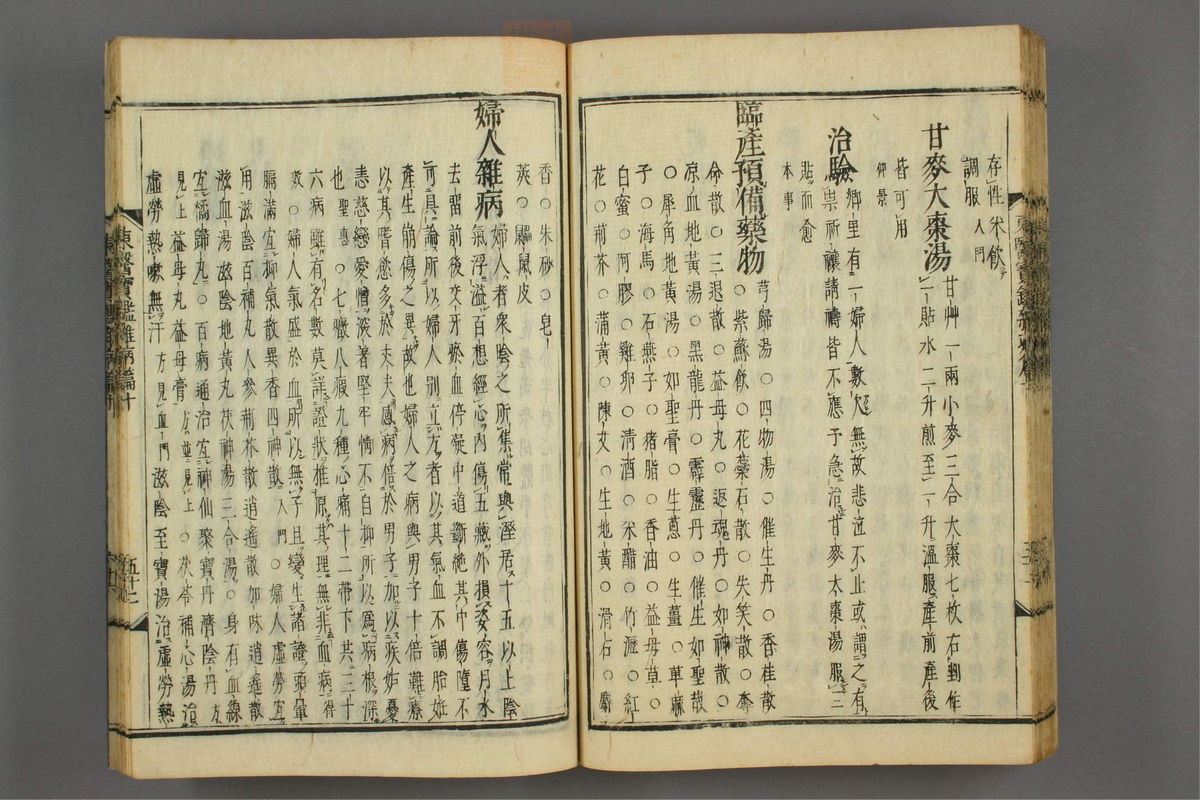 存性米飮
調服 入門
甘麥大棗湯 甘艸一兩小麥三合大棗七枚右剉作
一貼水二升煎至一升溫服產前產後
皆可用
仲景
治驗 鄉里有一婦人數欠無故悲泣不止或謂之有
祟祈禳請禱皆不應予急治甘麥大棗湯服三
貼而愈
本事
臨產預備藥物 芎歸湯○四物湯○催生丹○香桂散
○紫蘇飮○花蘂石散○失笑散○奪
命散○三退散○益母丸○返魂丹○如神散○
凉血地黃湯○黑龍丹○霹靂丹○催生如聖散
○犀角地黃湯○如聖膏○生葱○生薑○草麻
子○海馬○石燕子○猪脂○香油○益母草○
白蜜○阿膠○雞卵○淸酒○米醋○竹瀝○紅
花○荊芥○蒲黃○陳艾○生地黃○滑石○麝
香○朱砂○皂
莢○鼺鼠皮
婦人雜病 婦人者衆陰之所集常與溼居十五以上陰
氣浮溢百想經心內傷五藏外損姿容月水
去留前後交牙瘀血停凝中道斷絕其中傷墮不
可具論所以婦人別立方者以其氣血不調胎妊
產生崩傷之異故也婦人之病與男子十倍難療
以其嗜慾多於丈夫感病倍於男子加以疾妬憂
恚慈戀愛憎深著堅牢情不自抑所以爲病根深
也 聖惠○七癥八瘕九種心痛十二帶下共三十
六病雖有名數莫詳證狀推原其理無非血病 得
效○婦人氣盛於血所以無子且變生諸證頭暈
膈滿宜抑氣散異香四神散 入門○婦人虛勞宜
用滋陰百補丸人參荊芥散逍遙散加味逍遙散
滋血湯滋陰地黃丸茯神湯三合湯○身有血線
宜橘歸丸○百病通治宜神仙聚寶丹濟陰丹 方
見上 益母丸益母膏 方並見上○茯苓補心湯治
虛勞熱嗽無汗 方見血門 滋陰至寶湯治虛勞熱
東醫寶鑑雜病篇十